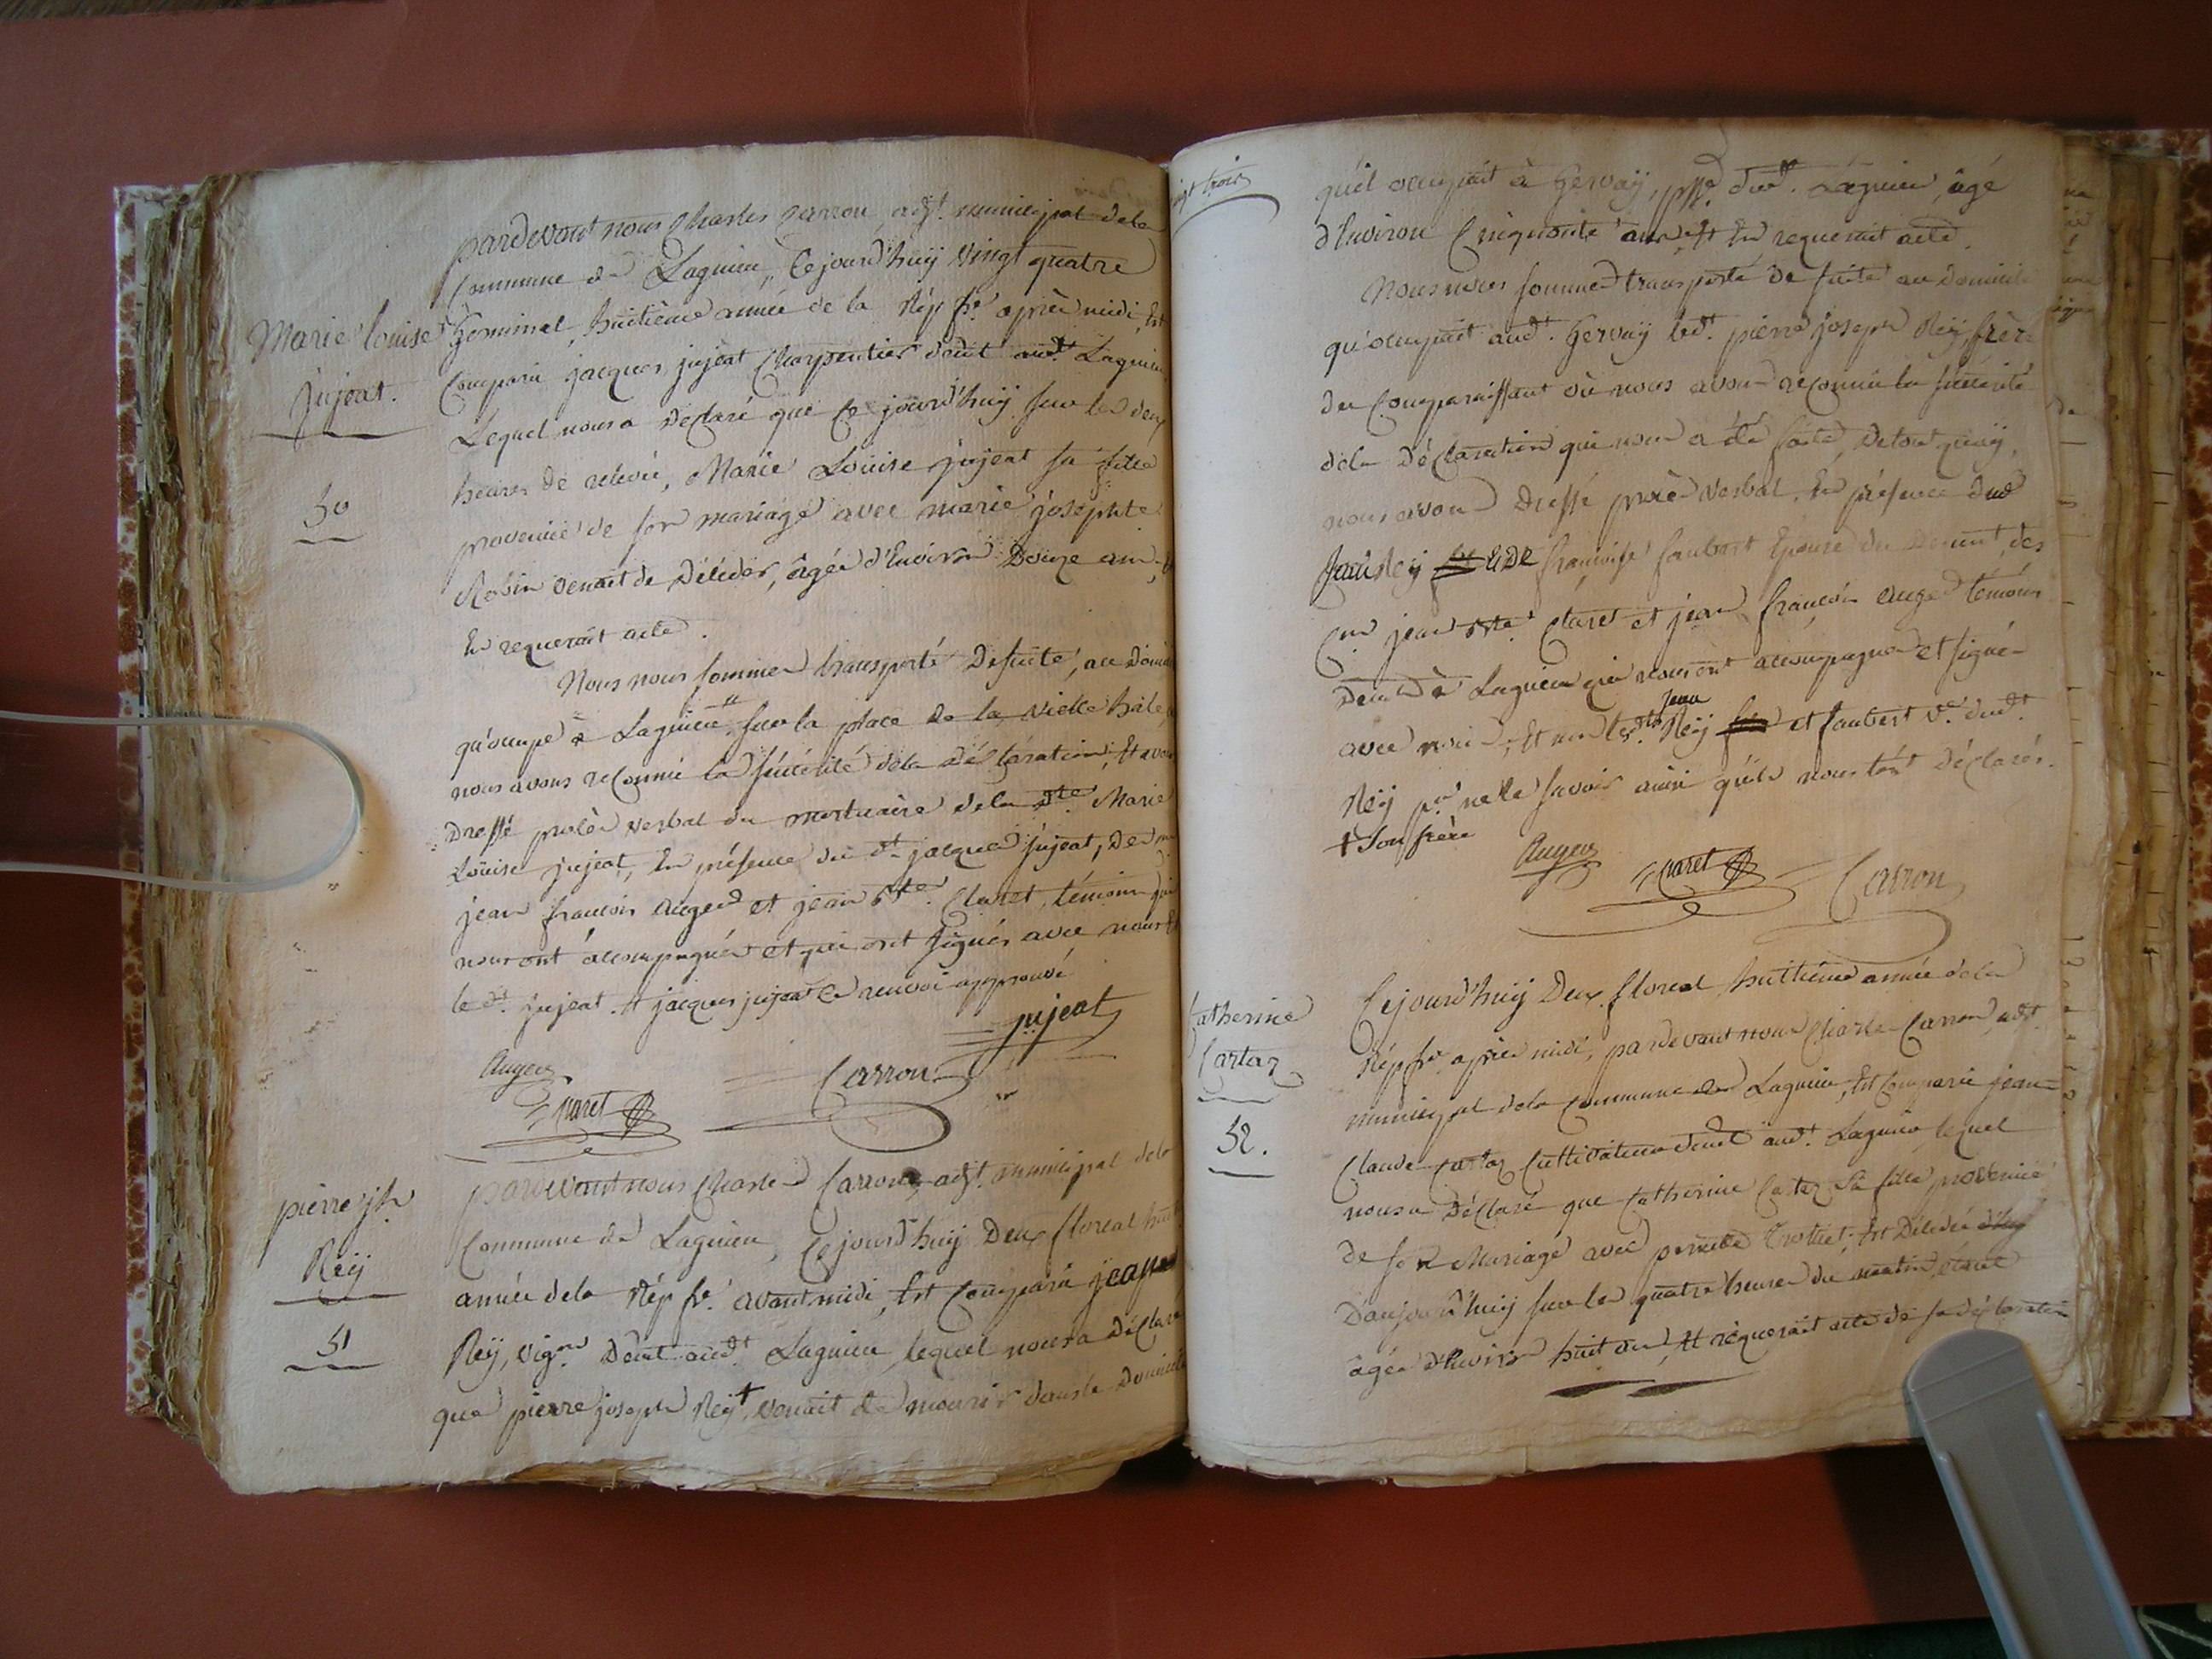 Marie louise
jujeat.
50
pardevant nous Charles Carron, adjt. municipal dela
Commune de Lagnieu, Cejourd'huÿ vingt quatre
Germinal, huitième année de la Rép fse. après midi, Est
Comparu jacques jujeat Charpentier demt. audt. Lagnieu,
Lequel nous a declaré que Ce jourd'huÿ sur les deux
heures de relevée, Marie Louise jujeat sa fille
provenue de son mariage avec marie josephte
Robin venait de Déléder, âgée d'Environ Douze ans, Et
En requerait acte.
Nous nous sommes transporté Desuite, au Domicile
qu'occupe à Lagnieu # sur la place de la vielle hale,
nous avons reconnu la sincérité dela Déclaration, Et avons
Dressé procès verbal du mortuaire dela dte. Marie
Louise jujeat, En présence du dt. jacques jujeat, De
jean francois Auger et jean Bte. Claret, témoins qui
nous ont accompagnés et qui ont signés avec nous Et
le dt. jujeat. # jacques jujeat Ce renvoi approuvé
jujeat
Auger
Claret
Carron
pierre jh.
Reÿ
51
pardevant nous Charles Carron, adjt. municipal dela
Commune de Lagnieu, Cejourd'huÿ Deux floreal
année dela Rép fse. avant midi, Est Comparu jean
Reÿ, vign. Demt. audt. Lagnieu, lequel nous a déclaré
que pierre joseph Reÿ + venait de mourir dans le Domicile
vingt trois
qu'il occupait à Gervaÿ, dudt. Lagnieu, âgé
d'Environ Cinquante ans, Et En requerait acte.
Nous nous sommes transporté de suite au domicile
qu'occupait audt. Gervaÿ ledt. pierre joseph Reÿ, frère
du Comparaissant où nous avons reconnu la sincérité
dela Déclaration qui nous a été faite, De tout quoÿ,
nous avons Dressé procès verbal. En présence dud
jean Reÿ EtDe françoise Jaubert Epouse du Defunt, des
Cns. jean Bte. Claret et jean françois Auger témoins
Demt. à Lagnieu qui nous ont accompagnés et signés
avec nous, Et non lesdts. jean Reÿ et Jaubert ve. dudt.
Reÿ pour ne le savoir ainsi qu'ils nous l'ont déclarés.
+ Son frère
Auger
Claret
Carron
Catherine
Cartaz
52.
Cejourd'huÿ Deux floreal huitième année dela
Rép fse. après midi, pardevant nous Charles Carron adjt.
municipal dela Commune de Lagnieu, Est Comparu jean-
Claude Cartaz Cultivateur demt. audt. Lagnieu, lequel
nous a Déclaré que Catherine Cartaz sa fille provenue
de son Mariage avec pernette Trolliet, Est Délédée
D'aujourd'huÿ sur les quatre heures du matin, étant
âgée d'Environ huit ans, Et requerait acte de sa déclaration